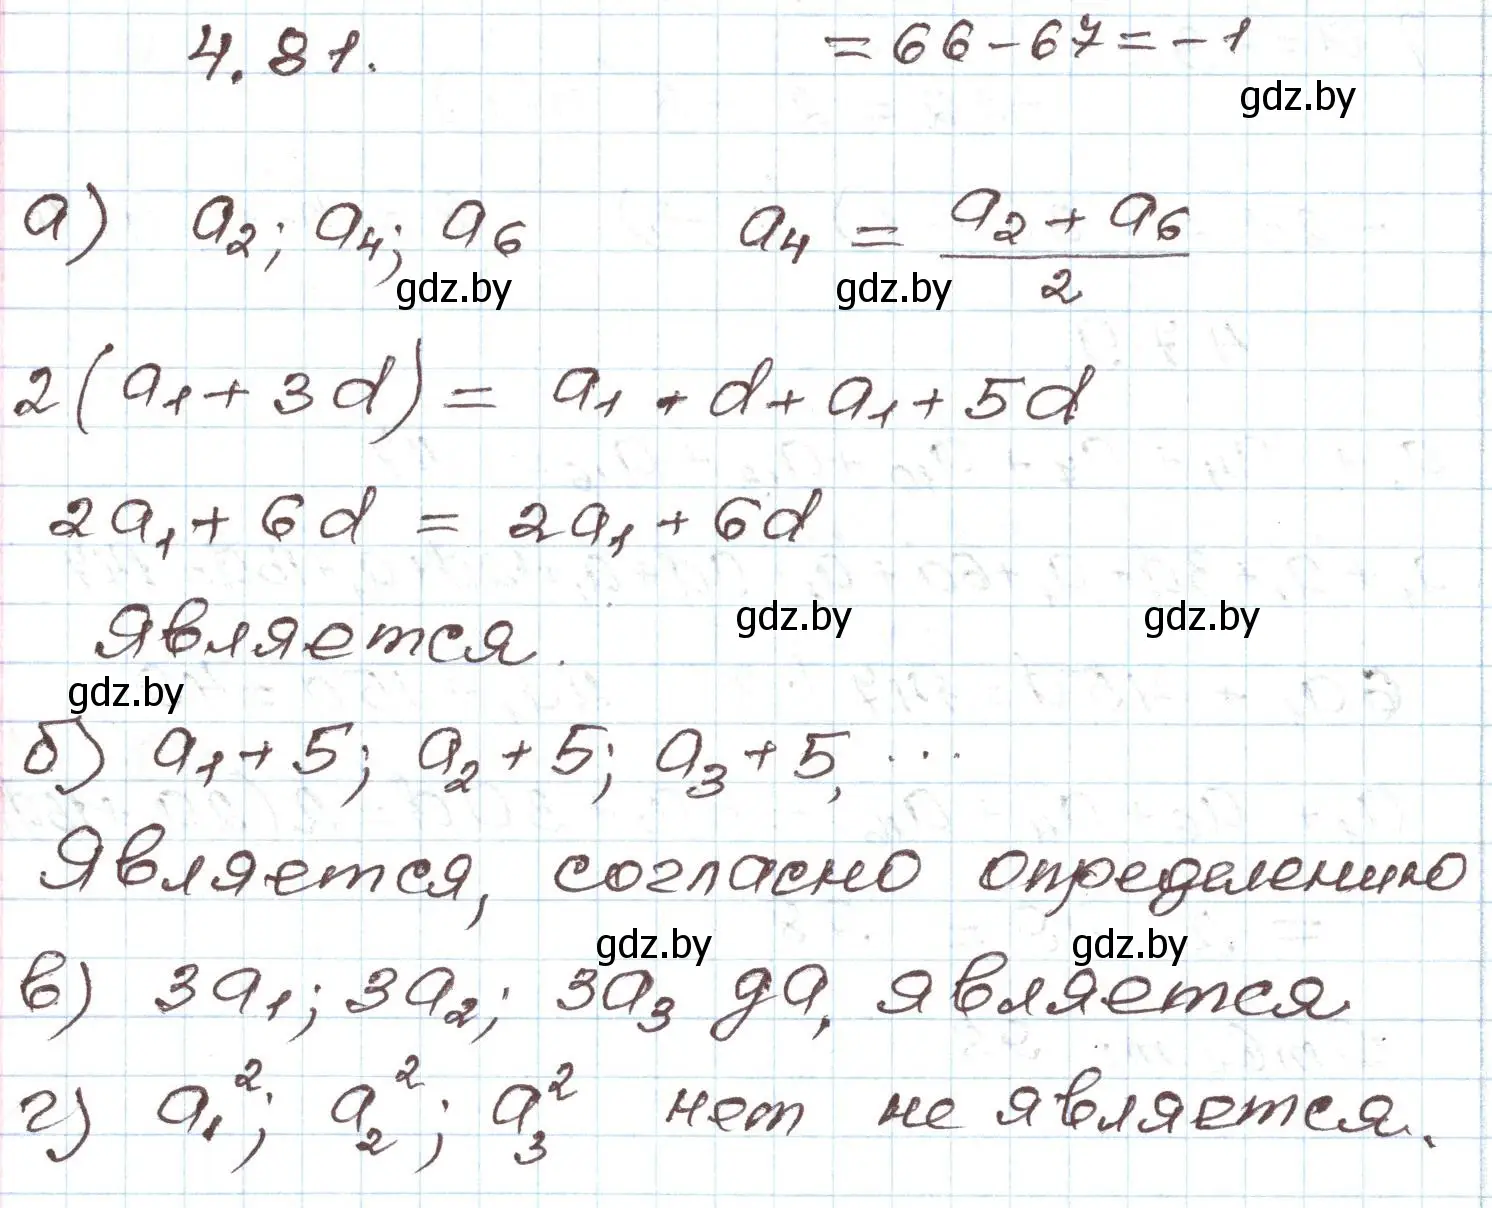 4.81.
= 66 - 67 = -1
gdz.by
а) a₂; a₄; a₆ a₄ = (a₂ + a₆)/2
gdz.by gdz.by
2(a₁ + 3d) = a₁ + d + a₁ + 5d
2a₁ + 6d = 2a₁ + 6d
Является.
gdz.by gdz.by
gdz.by
б) a₁ + 5; a₂ + 5; a₃ + 5, ...
Является, согласно определению
gdz.by gdz.by
в) 3a₁; 3a₂; 3a₃ да, является
г) a₁²; a₂²; a₃² нет не является.